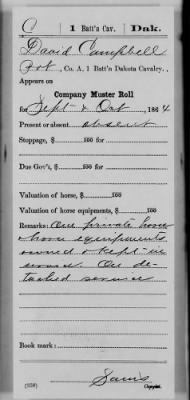 C | 1 Batt'n Cav. | Dak.
David Campbell
Pvt, Co. A, 1 Batt'n Dakota Cavalry.
Appears on
Company Muster Roll
for Sept & Oct, 1864
Present or absent absent
Stoppage, $ 100
Due Gov't, $ 100
Valuation of horse, $ 100
Valuation of horse equipments, $ 100
Remarks: One private horse
& horse equipments
owned & kept in
service. On de-
tached service
Book mark:
(358)
Copyist.